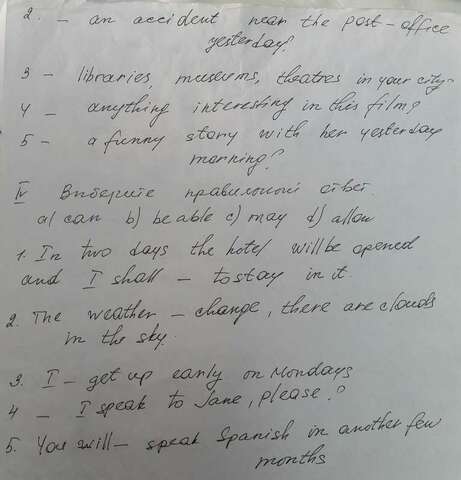 2. – an accident near the post-office
yesterday?
3 – libraries, museums, theatres in your city?
4 – anything interesting in this film?
5 – a funny story with her yesterday
morning?
IV Выберите правильный ответ.
a) can b) be able c) may d) allow
1. In two days the hotel will be opened
and I shall – to stay in it.
2. The weather – change, there are clouds
in the sky.
3. I – get up early on Mondays
4 – I speak to Jane, please?
5. You will – speak Spanish in another few
months